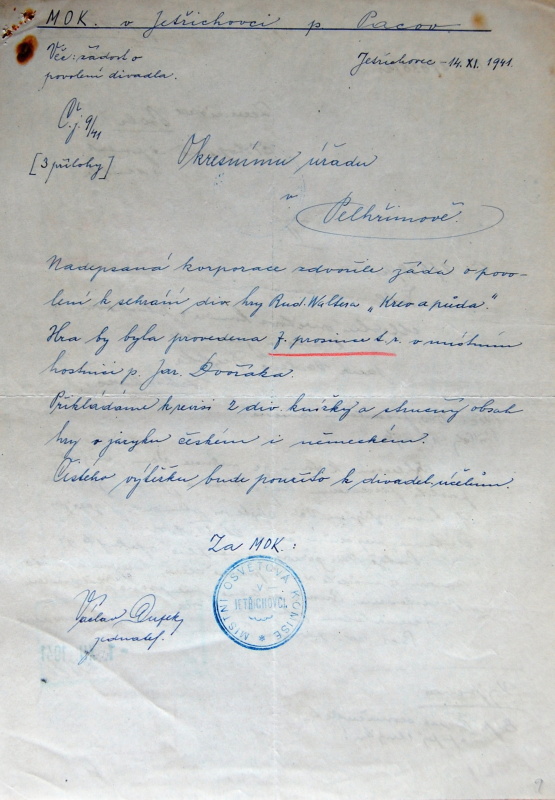 MOK. v Jetřichovci p. Pacov.
Věc: žádost o
povolení divadla.
Jetřichovec - 14. XI. 1941.
Č.j. 9/41
[3 přílohy]
Okresnímu úřadu
v
Pelhřimově.
Nadepsaná korporace zdvořile žádá o povo-
lení k sehrání div. hry Rud. Waltera „Krev a půda."
Hra by byla provedena 7. prosince t. r. v místním
hostinci p. Jar. Dvořáka.
Přikládáme k revisi 2 div. knížky a stručný obsah
hry v jazyku českém i německém.
Čistého výtěžku bude použito k divadel. účelům.
Za MOK.:
MÍSTNÍ OSVĚTOVÁ KOMISE
V
JETŘICHOVCI
Václav
jednatel.